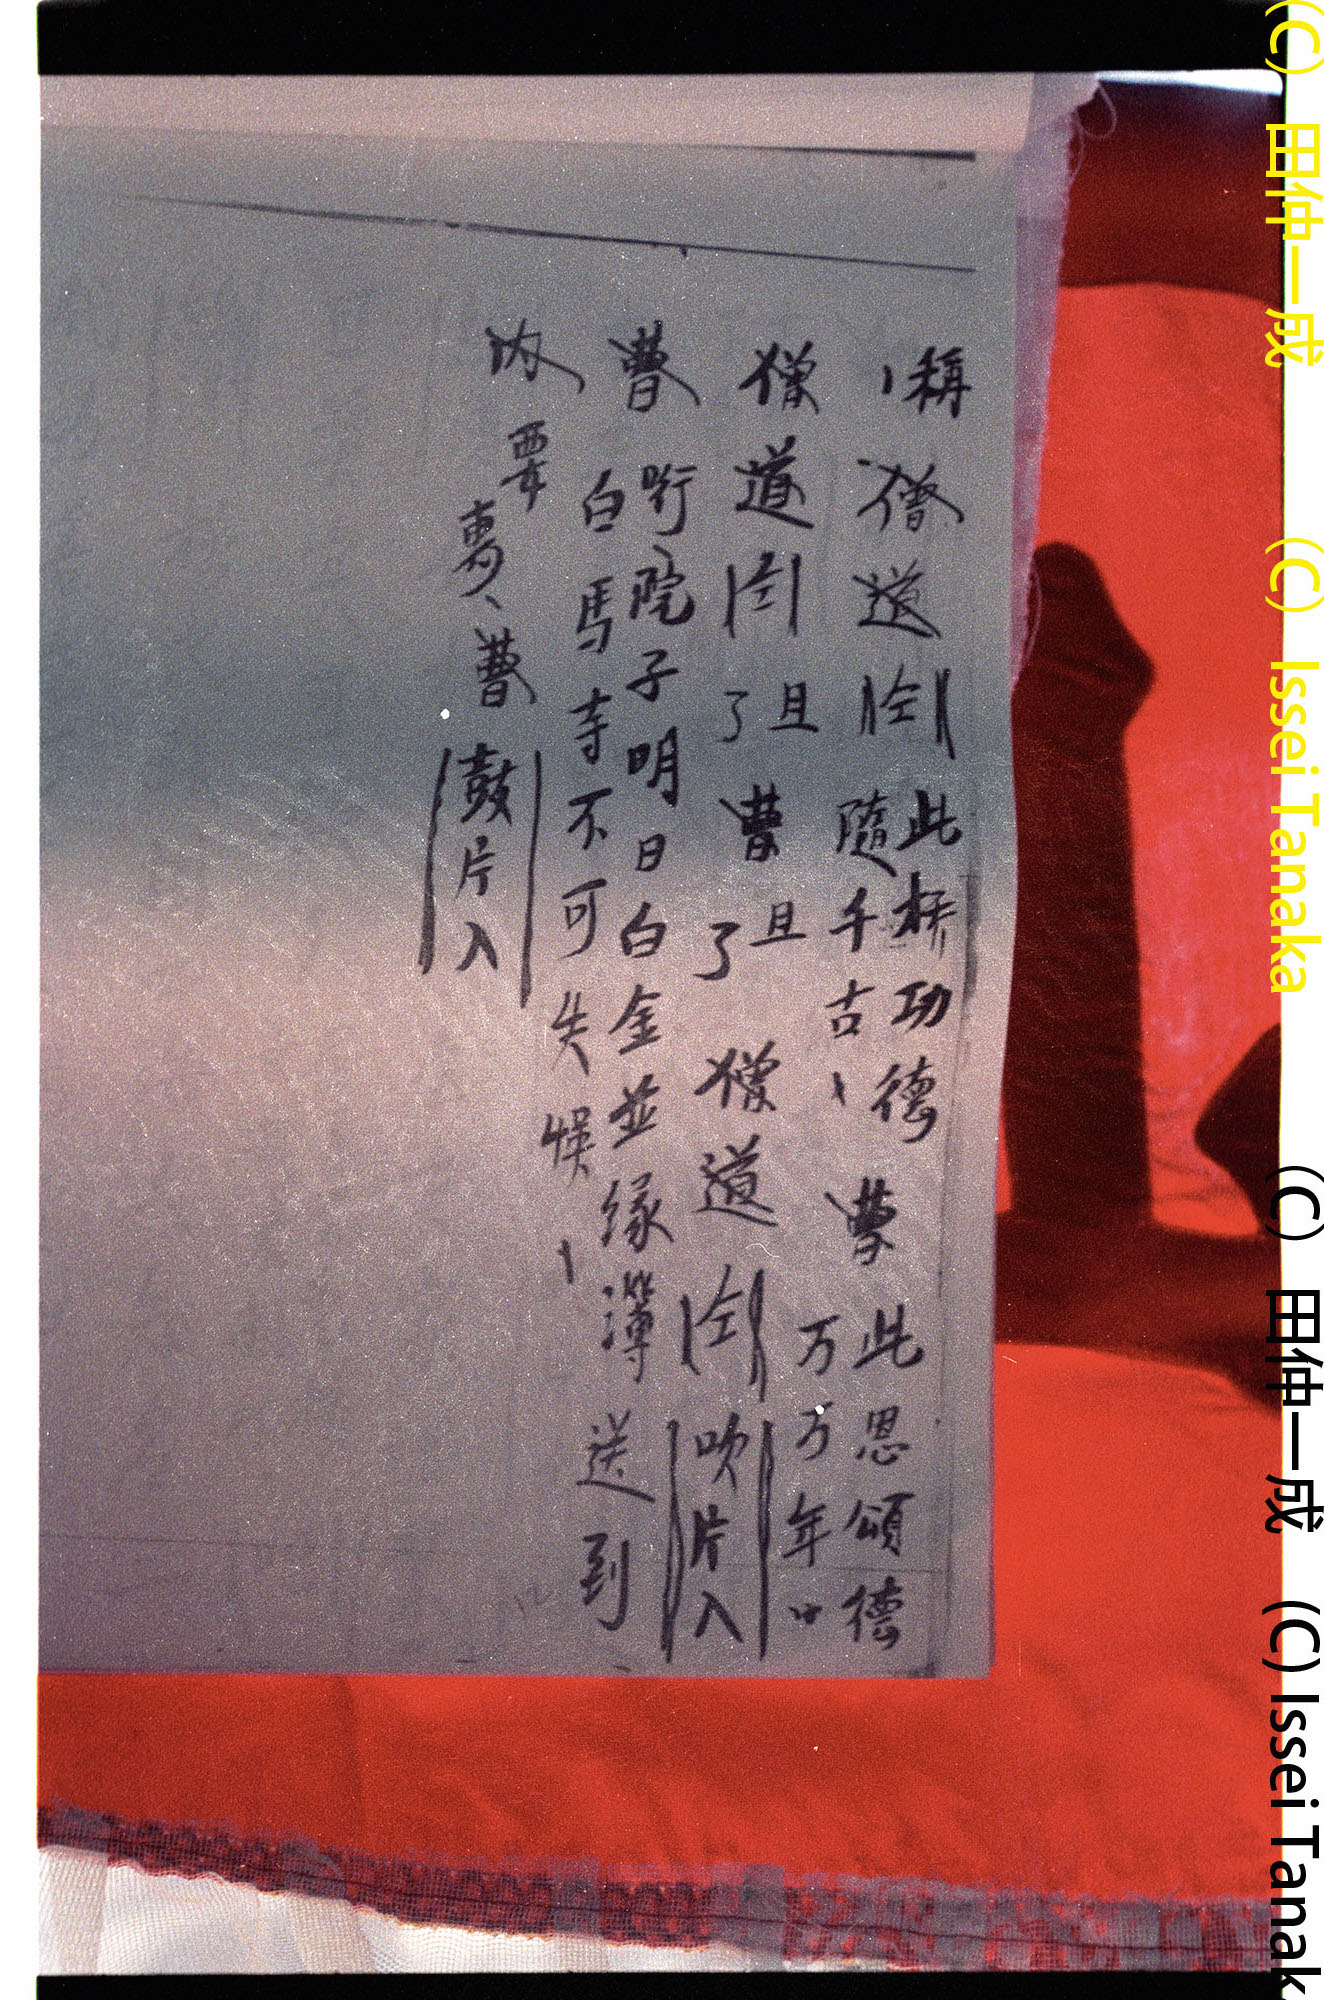 稱 僧道仝 此桥功德 曹 此恩頌德
隨千古 万万年
僧道仝 且了 曹 且了 僧道仝 吹片入
曹 院子明日白金並緣簿送到
白馬寺不可失悞
内 要 曹 鼓片入
(C) 田仲一成 (C) Issei Tanaka
(C) 田仲一成 (C) Issei Tanak